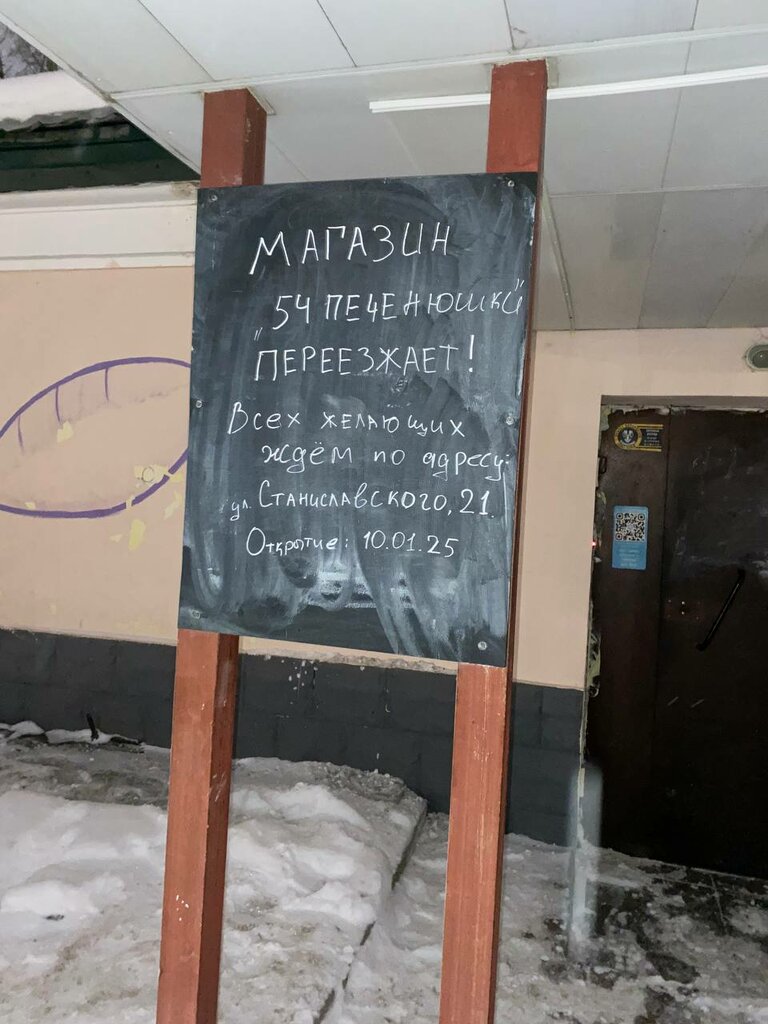 МАГАЗИН
"54 ПЕЧЕНЮШКИ"
ПЕРЕЕЗЖАЕТ!
Всех желающих
ждём по адресу:
ул. Станиславского, 21.
Открытие: 10.01.25